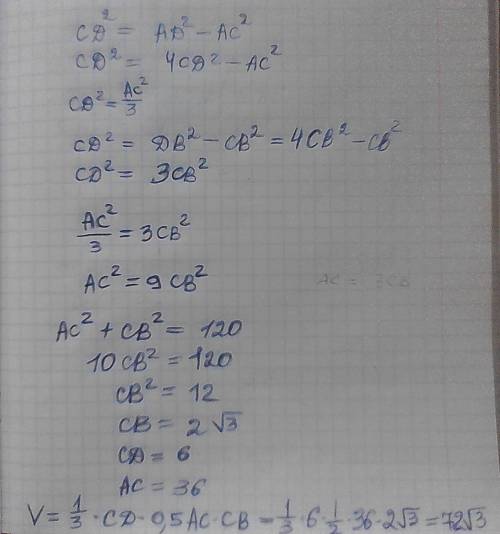 CD² = AD² - AC²
CD² = 4CD² - AC²
CD² = AC²/3
CD² = DB² - CB² = 4CB² - CB²
CD² = 3CB²
AC²/3 = 3CB²
AC² = 9CB²
AC = 3CB
AC² + CB² = 120
10CB² = 120
CB² = 12
CB = 2√3
CD = 6
AC = 36
V = 1/3 · CD · 0,5AC · CB = 1/3 · 6 · 1/2 · 36 · 2√3 = 72√3